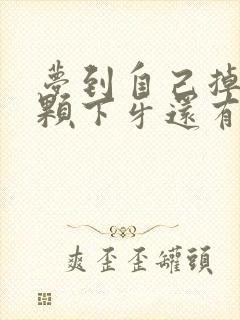 夢到自己掉
顆下牙還有
爽歪歪罐頭